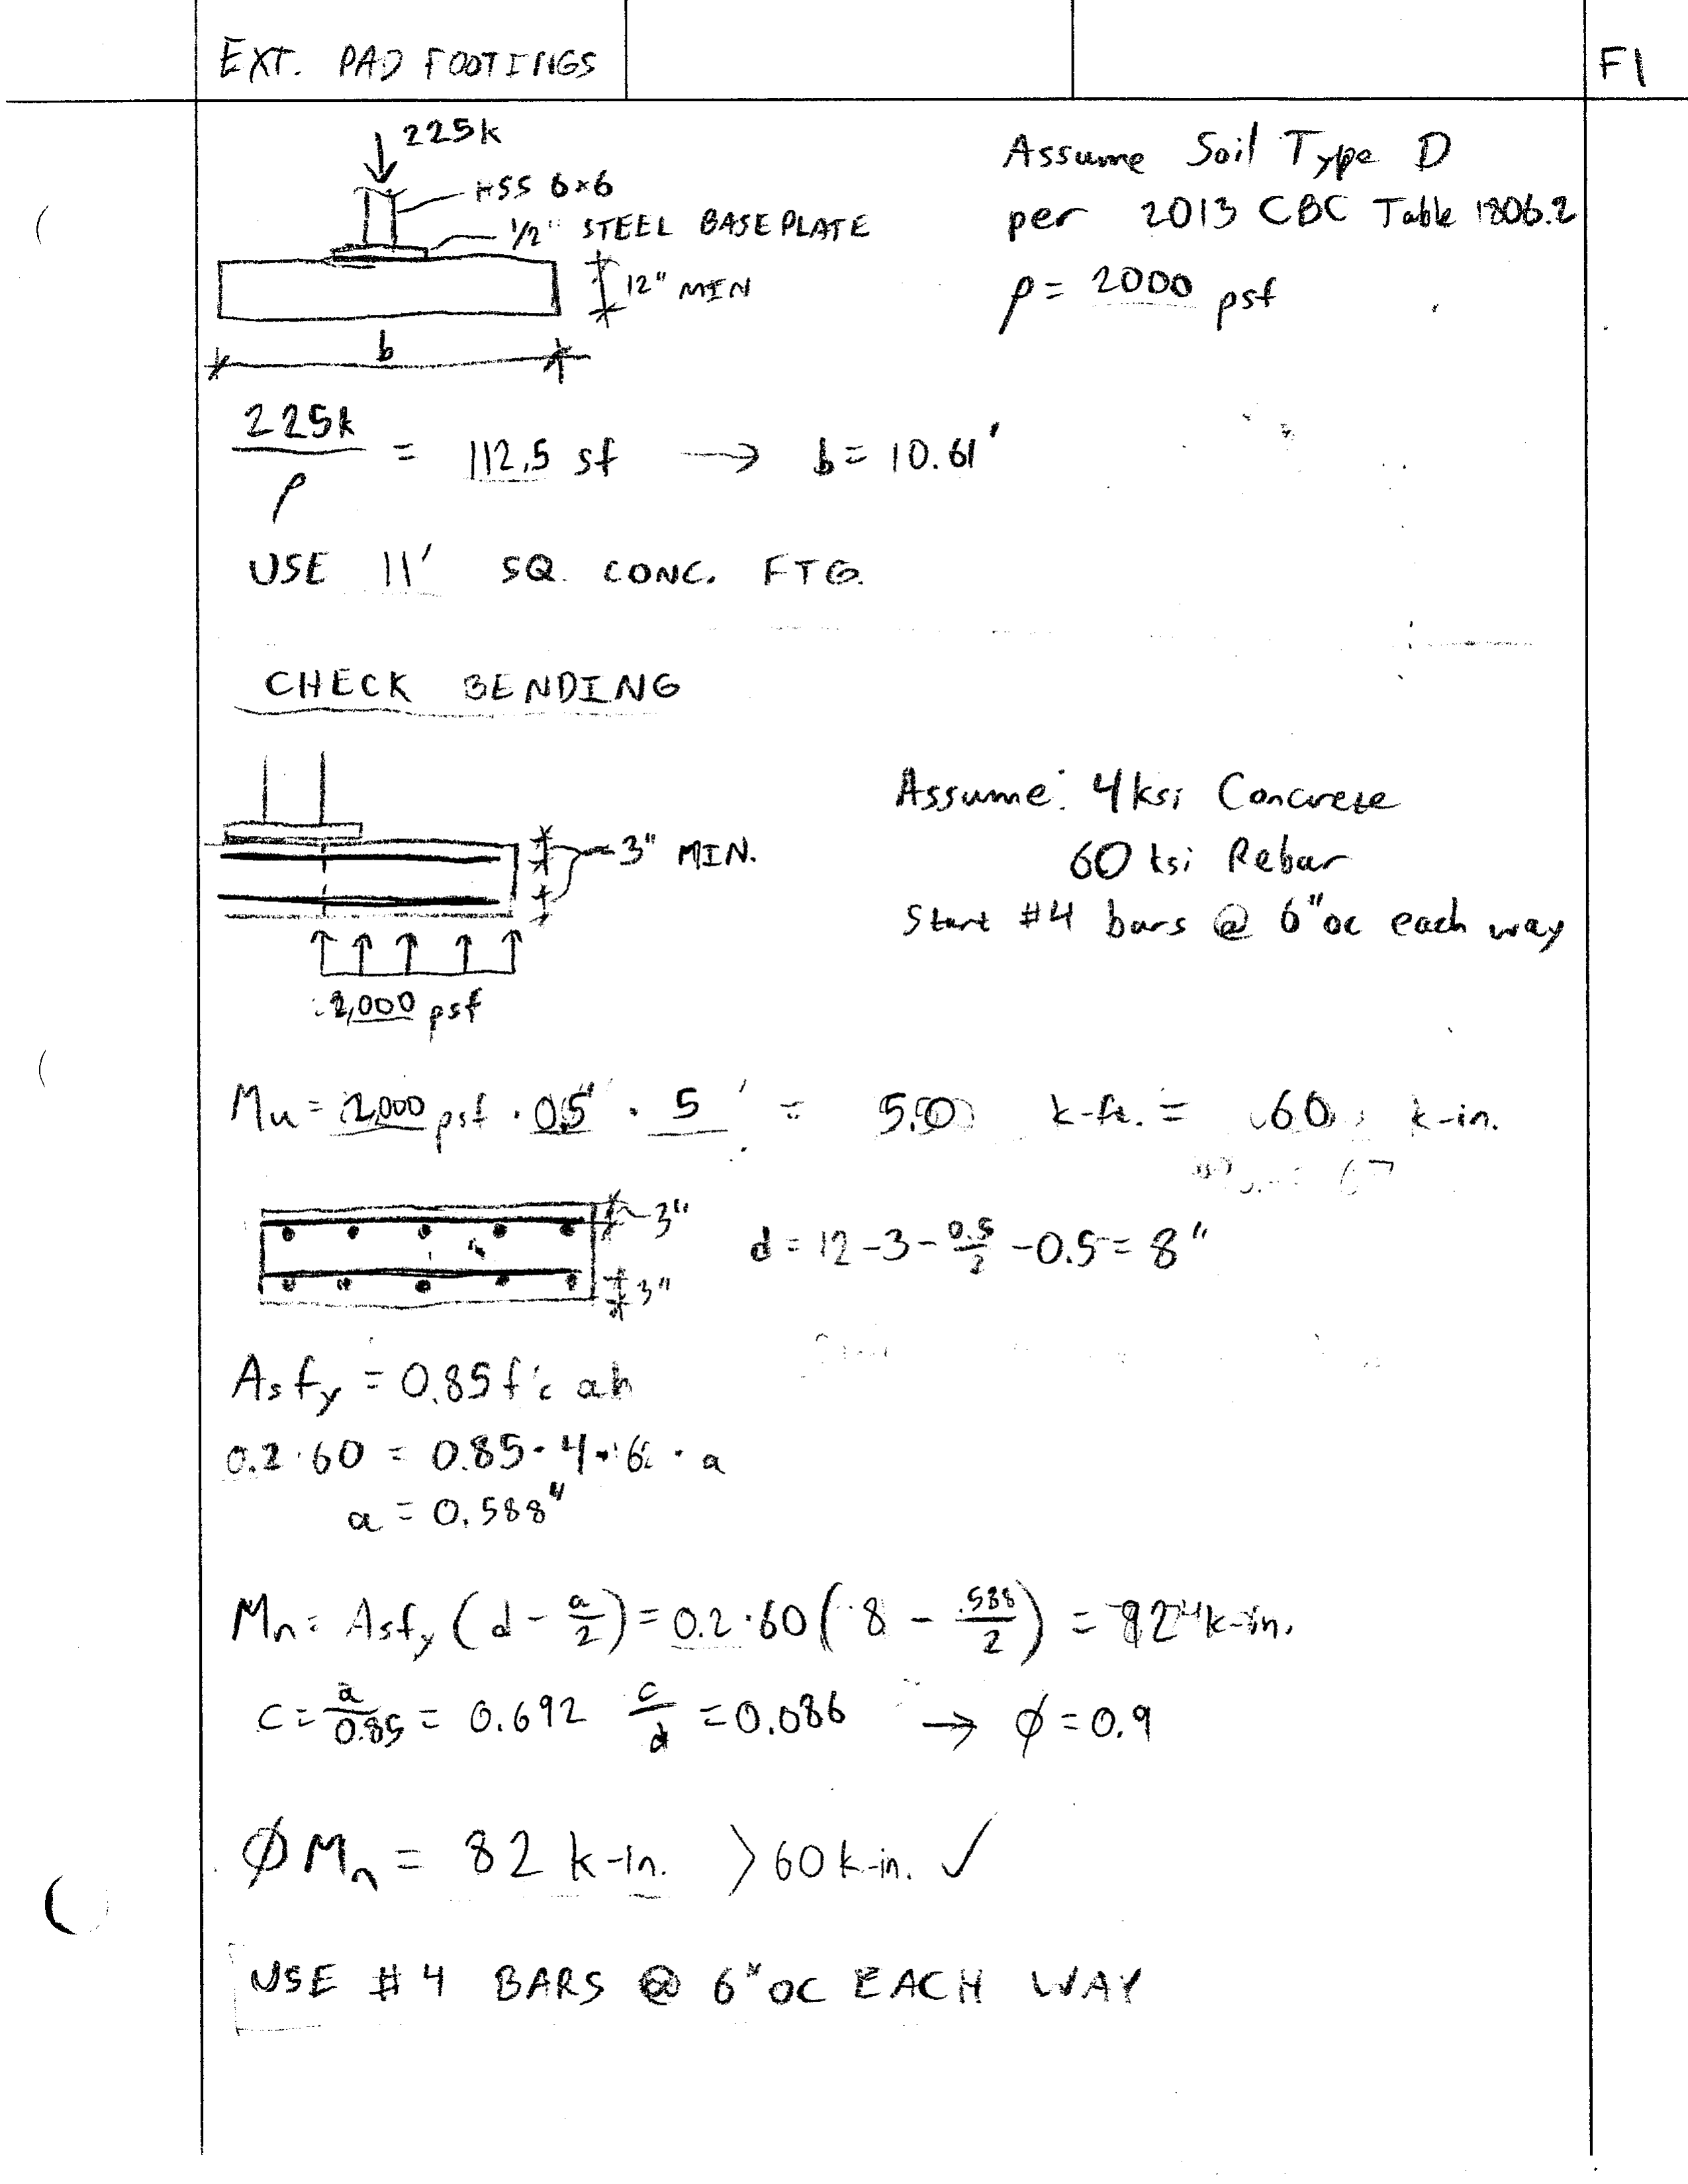 EXT. PAD FOOTINGS
F1
225k
HSS 6×6
1/2" STEEL BASE PLATE
12" MIN
b
Assume Soil Type D
per 2013 CBC Table 1806.2
ρ = 2000 psf
225k/ρ = 112.5 sf → b = 10.61'
USE 11' SQ. CONC. FTG.
CHECK BENDING
3" MIN.
2,000 psf
Assume: 4ksi Concrete
60 ksi Rebar
Start #4 bars @ 6"oc each way
Mu = 2,000 psf · 0.5' · 5' = 5.0 k-ft. = 60 k-in.
3"
3"
d = 12 - 3 - 0.5/2 - 0.5 = 8"
Asfy = 0.85f'c ab
0.2·60 = 0.85·4·6·a
a = 0.588"
Mn = Asfy (d - a/2) = 0.2·60 (8 - .588/2) = 92.4 k-in.
c = a/0.85 = 0.692 c/d = 0.086 → ϕ = 0.9
ϕMn = 82 k-in. > 60 k-in. ✓
USE #4 BARS @ 6"OC EACH WAY